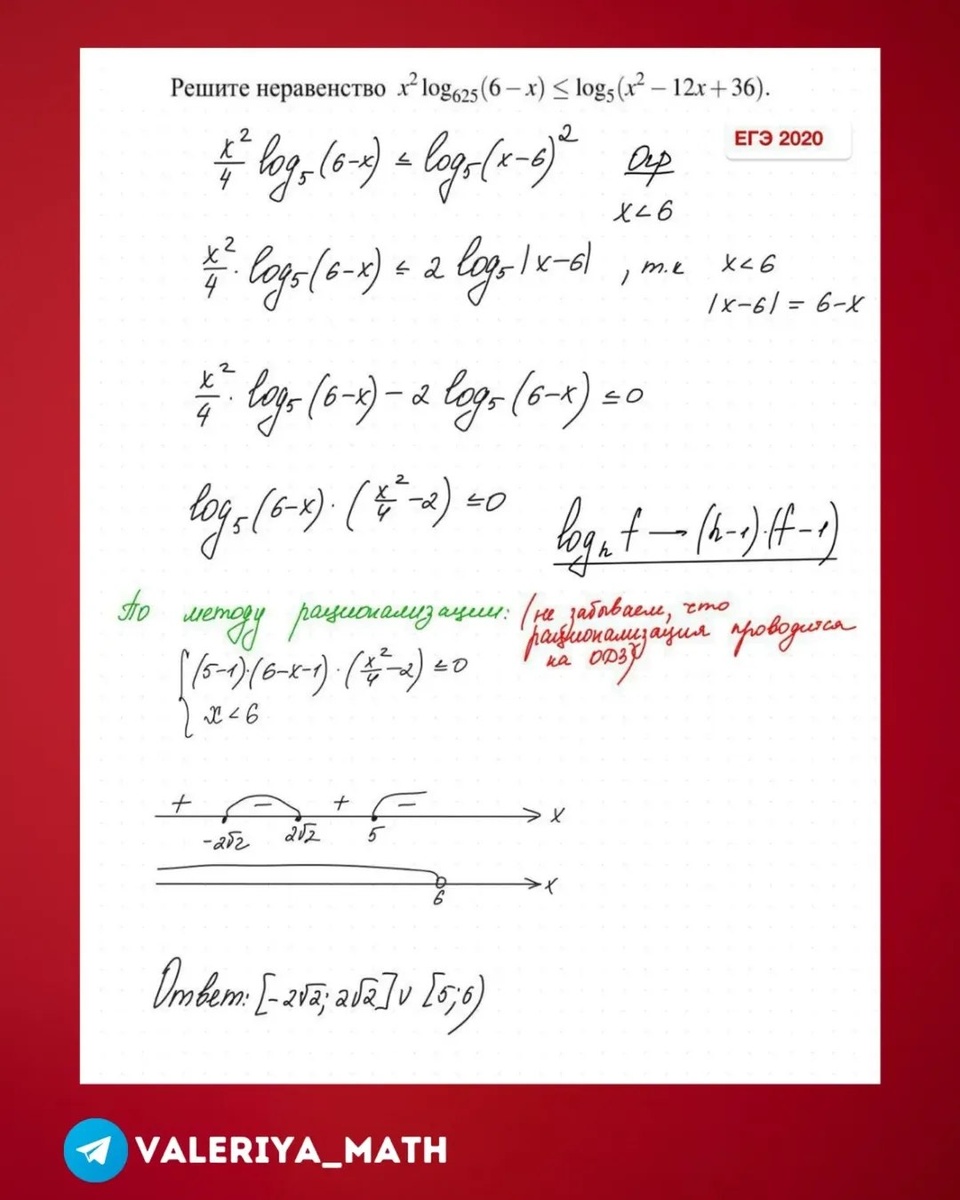 Решите неравенство x² log₆₂₅(6 − x) ≤ log₅(x² − 12x + 36).
ЕГЭ 2020
x²/4 log₅(6-x) ≤ log₅(x-6)² Огр
x<6
x²/4 · log₅(6-x) ≤ 2 log₅|x-6| , т.к x<6
|x-6| = 6-x
x²/4 · log₅(6-x) - 2 log₅(6-x) ≤0
log₅(6-x) · (x²/4 -2) ≤0
logₕ f — (h-1)·(f-1)
По методу рационализации: (не забываем, что
рационализация проводится
на ОДЗ)
{(5-1)·(6-x-1) · (x²/4 -2) ≤0
x<6
+ − + − x
-2√2 2√2 5
x
6
Ответ: [-2√2; 2√2] ∪ [5;6)
VALERIYA_MATH